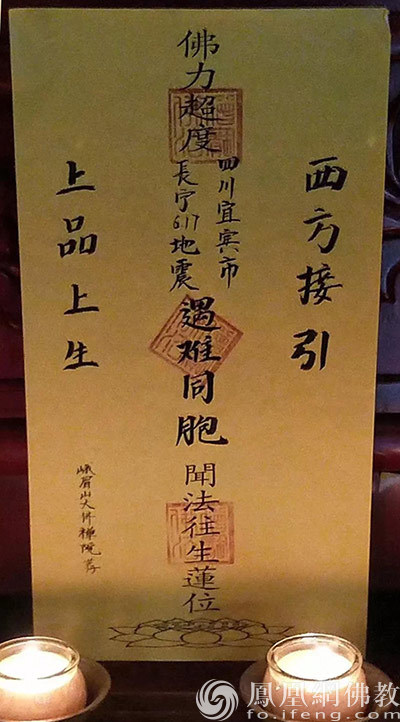 西方接引
佛力超度
四川宜宾市
長宁6.17地震
遇难同胞
聞法往生蓮位
上品上生
峨眉山大佛禅院荐
鳳凰網佛教
fo.ifeng.com